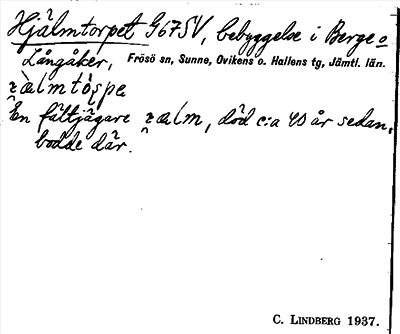 Hjälmtorpet G67SV, bebyggelse i Berge o
Långåker, Frösö sn, Sunne, Ovikens o. Hallens tg, Jämtl. län.
En fältjägare, död c:a 40 år sedan,
bodde där.
C. LINDBERG 1937.